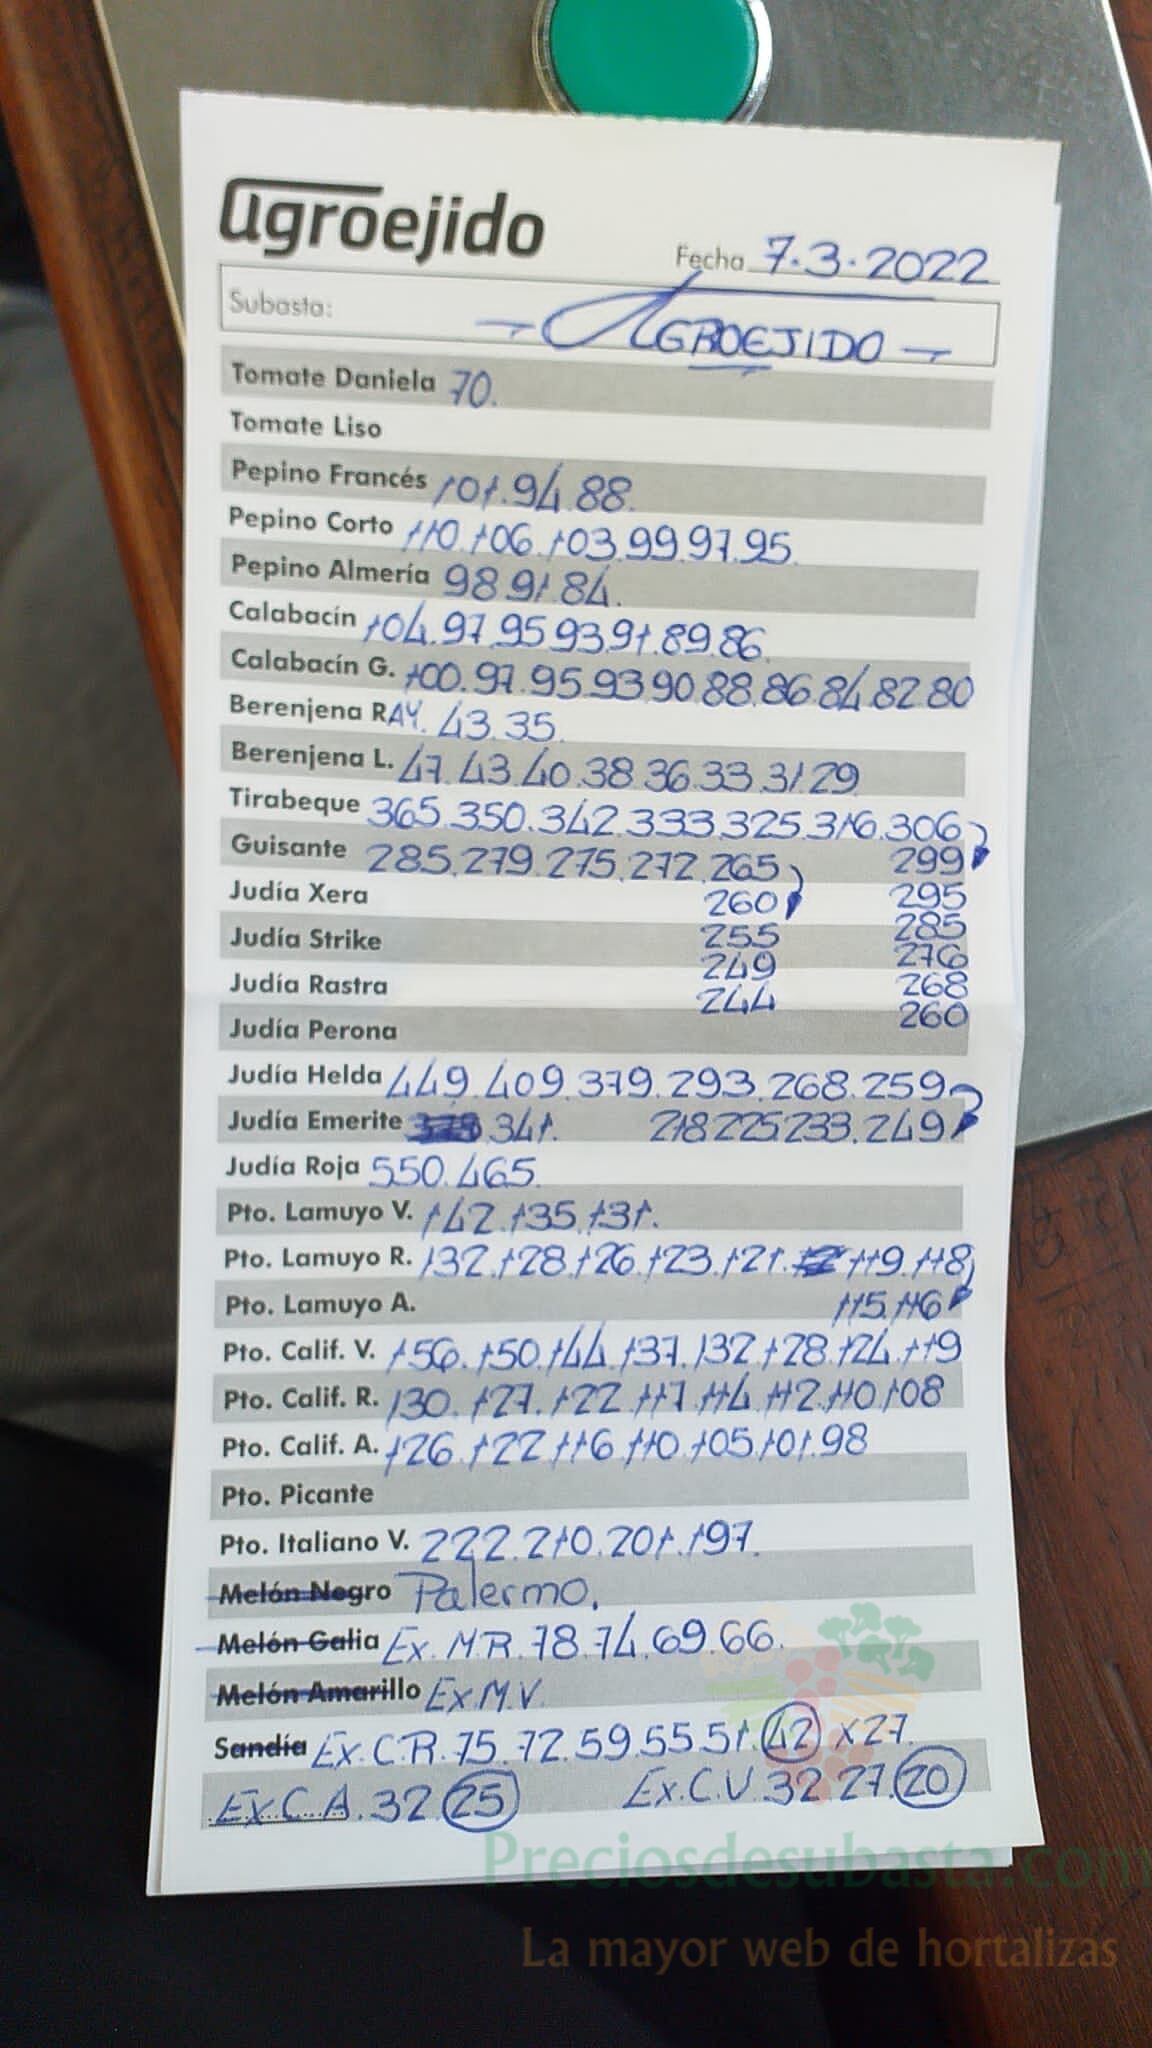 agroejido
Fecha 7.3.2022
Subasta: - AGROEJIDO -
Tomate Daniela 70.
Tomate Liso
Pepino Francés 101.94.88.
Pepino Corto 110.106.103.99.97.95.
Pepino Almería 98.91.84.
Calabacín 104.97.95.93.91.89.86.
Calabacín G. 100.97.95.93.90.88.86.84.82.80
Berenjena RAY. 43.35.
Berenjena L. 47.43.40.38.36.33.31.29
Tirabeque 365.350.342.333.325.316.306
Guisante 285.279.275.272.265 299
Judía Xera 260 295
Judía Strike 255 285
249 276
Judía Rastra 244 268
Judía Perona 260
Judía Helda 449.409.379.293.268.259
Judía Emerite 341. 218.225.233.249
Judía Roja 550.465.
Pto. Lamuyo V. 142.135.131.
Pto. Lamuyo R. 132.128.126.123.121. 119.118
Pto. Lamuyo A. 115.116
Pto. Calif. V. 156.150.144.137.132.128.124.119
Pto. Calif. R. 130.127.122.117.114.112.110.108
Pto. Calif. A. 126.122.116.110.105.101.98
Pto. Picante
Pto. Italiano V. 222.210.201.197.
Melón Negro Palermo.
Melón Galia Ex.M.R.78.74.69.66.
Melón Amarillo Ex.M.V.
Sandía Ex.C.R.75.72.59.55.51.42 x27.
Ex.C.A.32.25 Ex.C.V.32.27.20
Preciosdesubasta.com
La mayor web de hortalizas